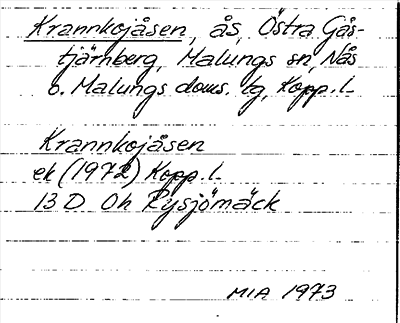 Krannkojåsen, ås, Östra Gås-
tjärnberg, Malungs sn, Nås
o. Malungs doms. tg, Kopp. l.
Krannkojåsen
ek (1972) Kopp. l.
13 D Oh Rysjömäck
MIA 1973